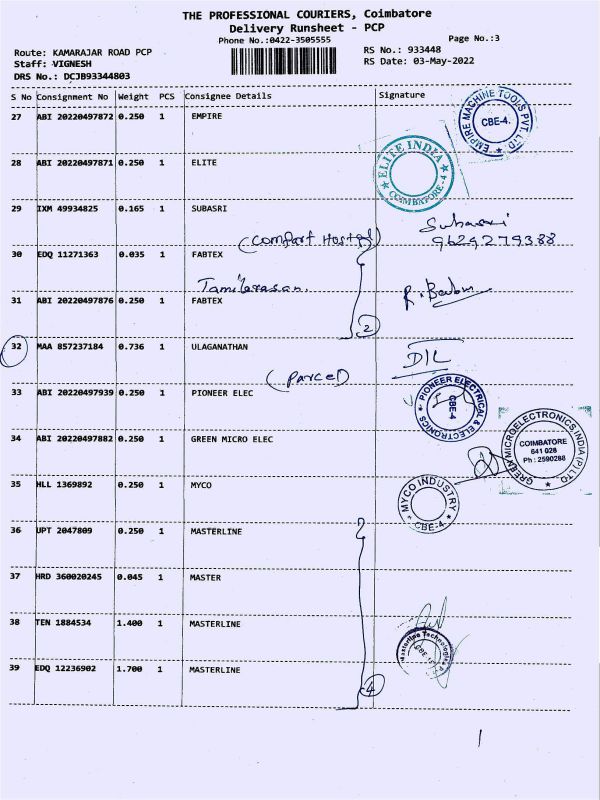 THE PROFESSIONAL COURIERS, Coimbatore
Delivery Runsheet - PCP
Phone No.:0422-3505555
Page No.:3
Route: KAMARAJAR ROAD PCP
RS No.: 933448
Staff: VIGNESH
RS Date: 03-May-2022
DRS No.: DCJB93344803
S No Consignment No Weight PCS Consignee Details Signature
27 ABI 20220497872 0.250 1 EMPIRE
EMPIRE MACHINE TOOLS PVT. LTD
CBE-4.
28 ABI 20220497871 0.250 1 ELITE
ELITE INDIA
COIMBATORE-4
29 IXM 49934825 0.165 1 SUBASRI
(Comfort Hostel)
Subasri
9629279388
30 EDQ 11271363 0.035 1 FABTEX
Tamilarasan.
31 ABI 20220497876 0.250 1 FABTEX
2
32 MAA 857237184 0.736 1 ULAGANATHAN
(Parcel)
D/L
33 ABI 20220497939 0.250 1 PIONEER ELEC
PIONEER ELECTRICAL & ELECTRONICS
CBE-4
34 ABI 20220497882 0.250 1 GREEN MICRO ELEC
GREEN MICROELECTRONICS INDIA (P) LTD
COIMBATORE
641 028
Ph : 2590288
35 HLL 1369892 0.250 1 MYCO
MYCO INDUSTRY
CBE-4.
36 UPT 2047809 0.250 1 MASTERLINE
37 HRD 360020245 0.045 1 MASTER
38 TEN 1884534 1.400 1 MASTERLINE
Masterline Technologies
39 EDQ 12236902 1.700 1 MASTERLINE
4